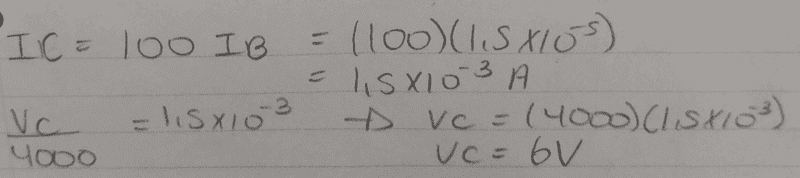 IC = 100 IB = (100)(1,5 x10⁻⁵)
= 1,5 x10⁻³ A
VC/4000 = 1,5 x10⁻³ → VC = (4000)(1,5 x10⁻³)
VC = 6V